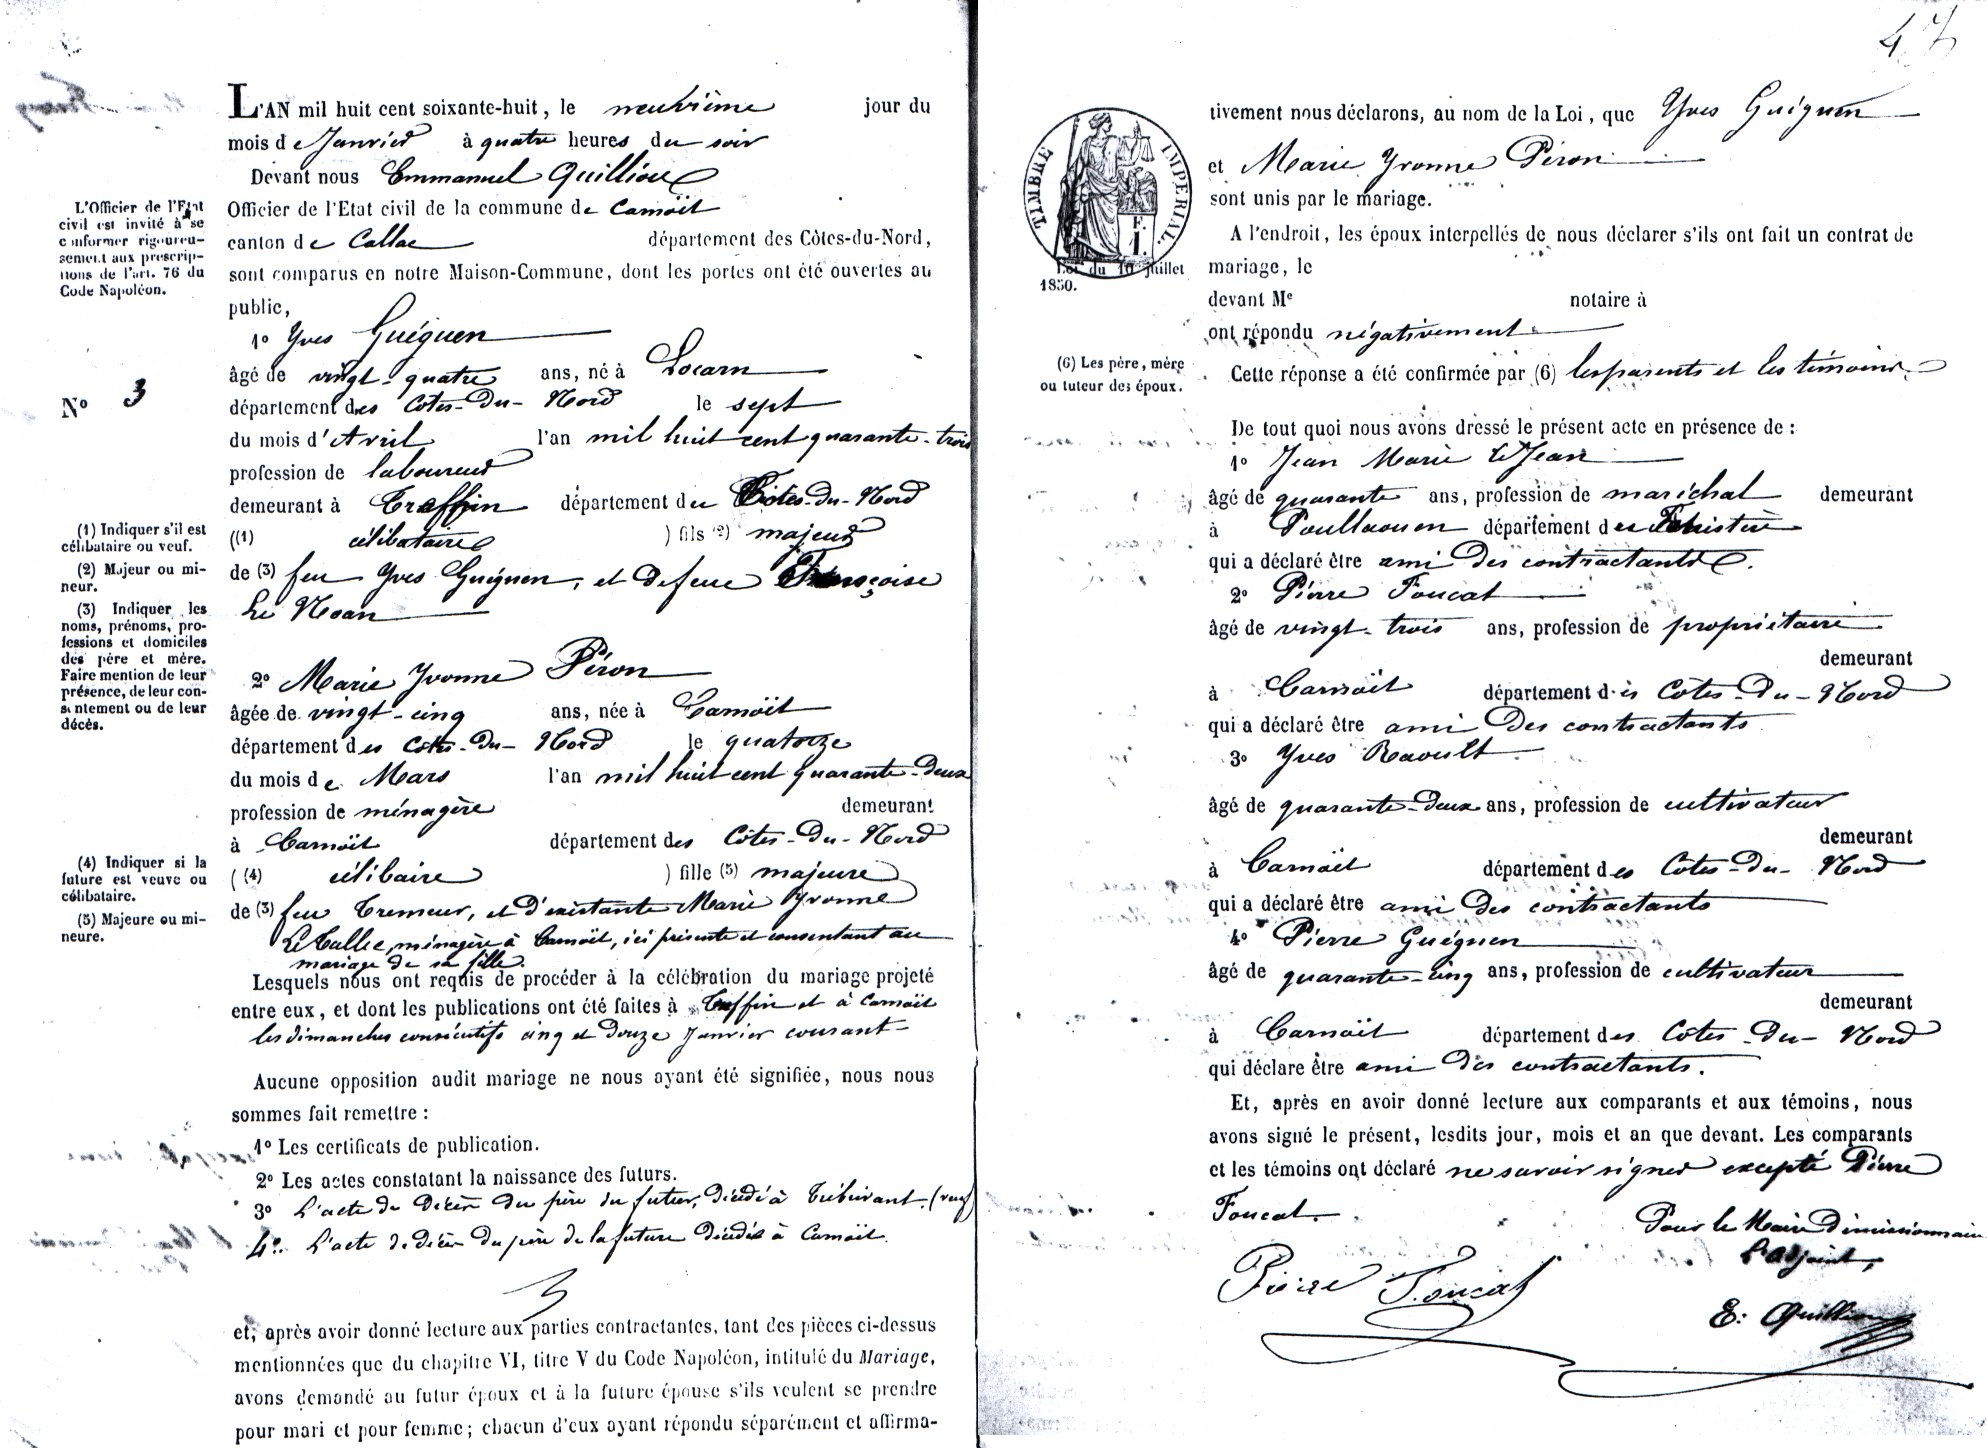 47
L'AN mil huit cent soixante-huit, le neuvième jour du
mois de Janvier à quatre heures du soir
Devant nous Emmanuel Quilliou
Officier de l'Etat civil de la commune de Carnoët
canton de Callac département des Côtes-du-Nord,
sont comparus en notre Maison-Commune, dont les portes ont été ouvertes au
public,
L'Officier de l'Etat
civil est invité à se
conformer rigoureu-
sement aux prescrip-
tions de l'art. 76 du
Code Napoléon.
1º Yves Guéguen
âgé de vingt-quatre ans, né à Locarn
Nº 3
département des Cotes-du-Nord le sept
du mois d'Avril l'an mil huit cent quarante-trois
profession de laboureur
demeurant à Treffrin département du Côtes-du-Nord
((1) célibataire ) fils (2) majeur
de (3) feu Yves Guéguen, et de feue Françoise
Le Noan
(1) Indiquer s'il est
célibataire ou veuf.
(2) Majeur ou mi-
neur.
(3) Indiquer les
noms, prénoms, pro-
fessions et domiciles
des père et mère.
Faire mention de leur
présence, de leur con-
sentement ou de leur
décès.
2º Marie Yvonne Péron
âgée de vingt-cinq ans, née à Carnoët
département des Cotes-du-Nord le quatorze
du mois de Mars l'an mil huit cent quarante-deux
profession de ménagère demeurant
à Carnoët département des Côtes-du-Nord
((4) célibaire ) fille (5) majeure
de (3) feu Tremeur, et d'existante Marie Yvonne
Le Tallec, ménagère à Carnoët, ici présente et consentant au
mariage de sa fille.
(4) Indiquer si la
future est veuve ou
célibataire.
(5) Majeure ou mi-
neure.
Lesquels nous ont requis de procéder à la célébration du mariage projeté
entre eux, et dont les publications ont été faites à Treffrin et à Carnoët
les dimanches consécutifs cinq et douze Janvier courant
Aucune opposition audit mariage ne nous ayant été signifiée, nous nous
sommes fait remettre :
1º Les certificats de publication.
2º Les actes constatant la naissance des futurs.
3º L'acte de décès du père du futur, décédé à Trébrivant. (veuf)
4º L'acte de décès du père de la future décédé à Carnoët.
et, après avoir donné lecture aux parties contractantes, tant des pièces ci-dessus
mentionnées que du chapitre VI, titre V du Code Napoléon, intitulé du Mariage,
avons demandé au futur époux et à la future épouse s'ils veulent se prendre
pour mari et pour femme ; chacun d'eux ayant répondu séparément et affirma-
TIMBRE IMPERIAL.
F.
1.
Loi du 10 juillet
1850.
tivement nous déclarons, au nom de la Loi, que Yves Guéguen
et Marie Yvonne Péron
sont unis par le mariage.
A l'endroit, les époux interpellés de nous déclarer s'ils ont fait un contrat de
mariage, le
devant Me notaire à
ont répondu négativement
(6) Les père, mère
ou tuteur des époux.
Cette réponse a été confirmée par (6) les parents et les témoins.
De tout quoi nous avons dressé le présent acte en présence de :
1º Jean Marie Le Jean
âgé de quarante ans, profession de maréchal demeurant
à Poullaouen département du Finistère
qui a déclaré être ami des contractants.
2º Pierre Foucat
âgé de vingt-trois ans, profession de propriétaire
demeurant
à Carnoët département des Côtes-du-Nord
qui a déclaré être ami des contractants
3º Yves Raoult
âgé de quarante-deux ans, profession de cultivateur
demeurant
à Carnoët département des Côtes-du-Nord
qui a déclaré être ami des contractants
4º Pierre Guéguen
âgé de quarante-cinq ans, profession de cultivateur
demeurant
à Carnoët département des Côtes-du-Nord
qui déclare être ami des contractants.
Et, après en avoir donné lecture aux comparants et aux témoins, nous
avons signé le présent, lesdits jour, mois et an que devant. Les comparants
et les témoins ont déclaré ne savoir signer excepté Pierre
Foucat.
Pour le Maire Démissionnaire
L'adjoint,
Pierre Foucat
E. Quilliou